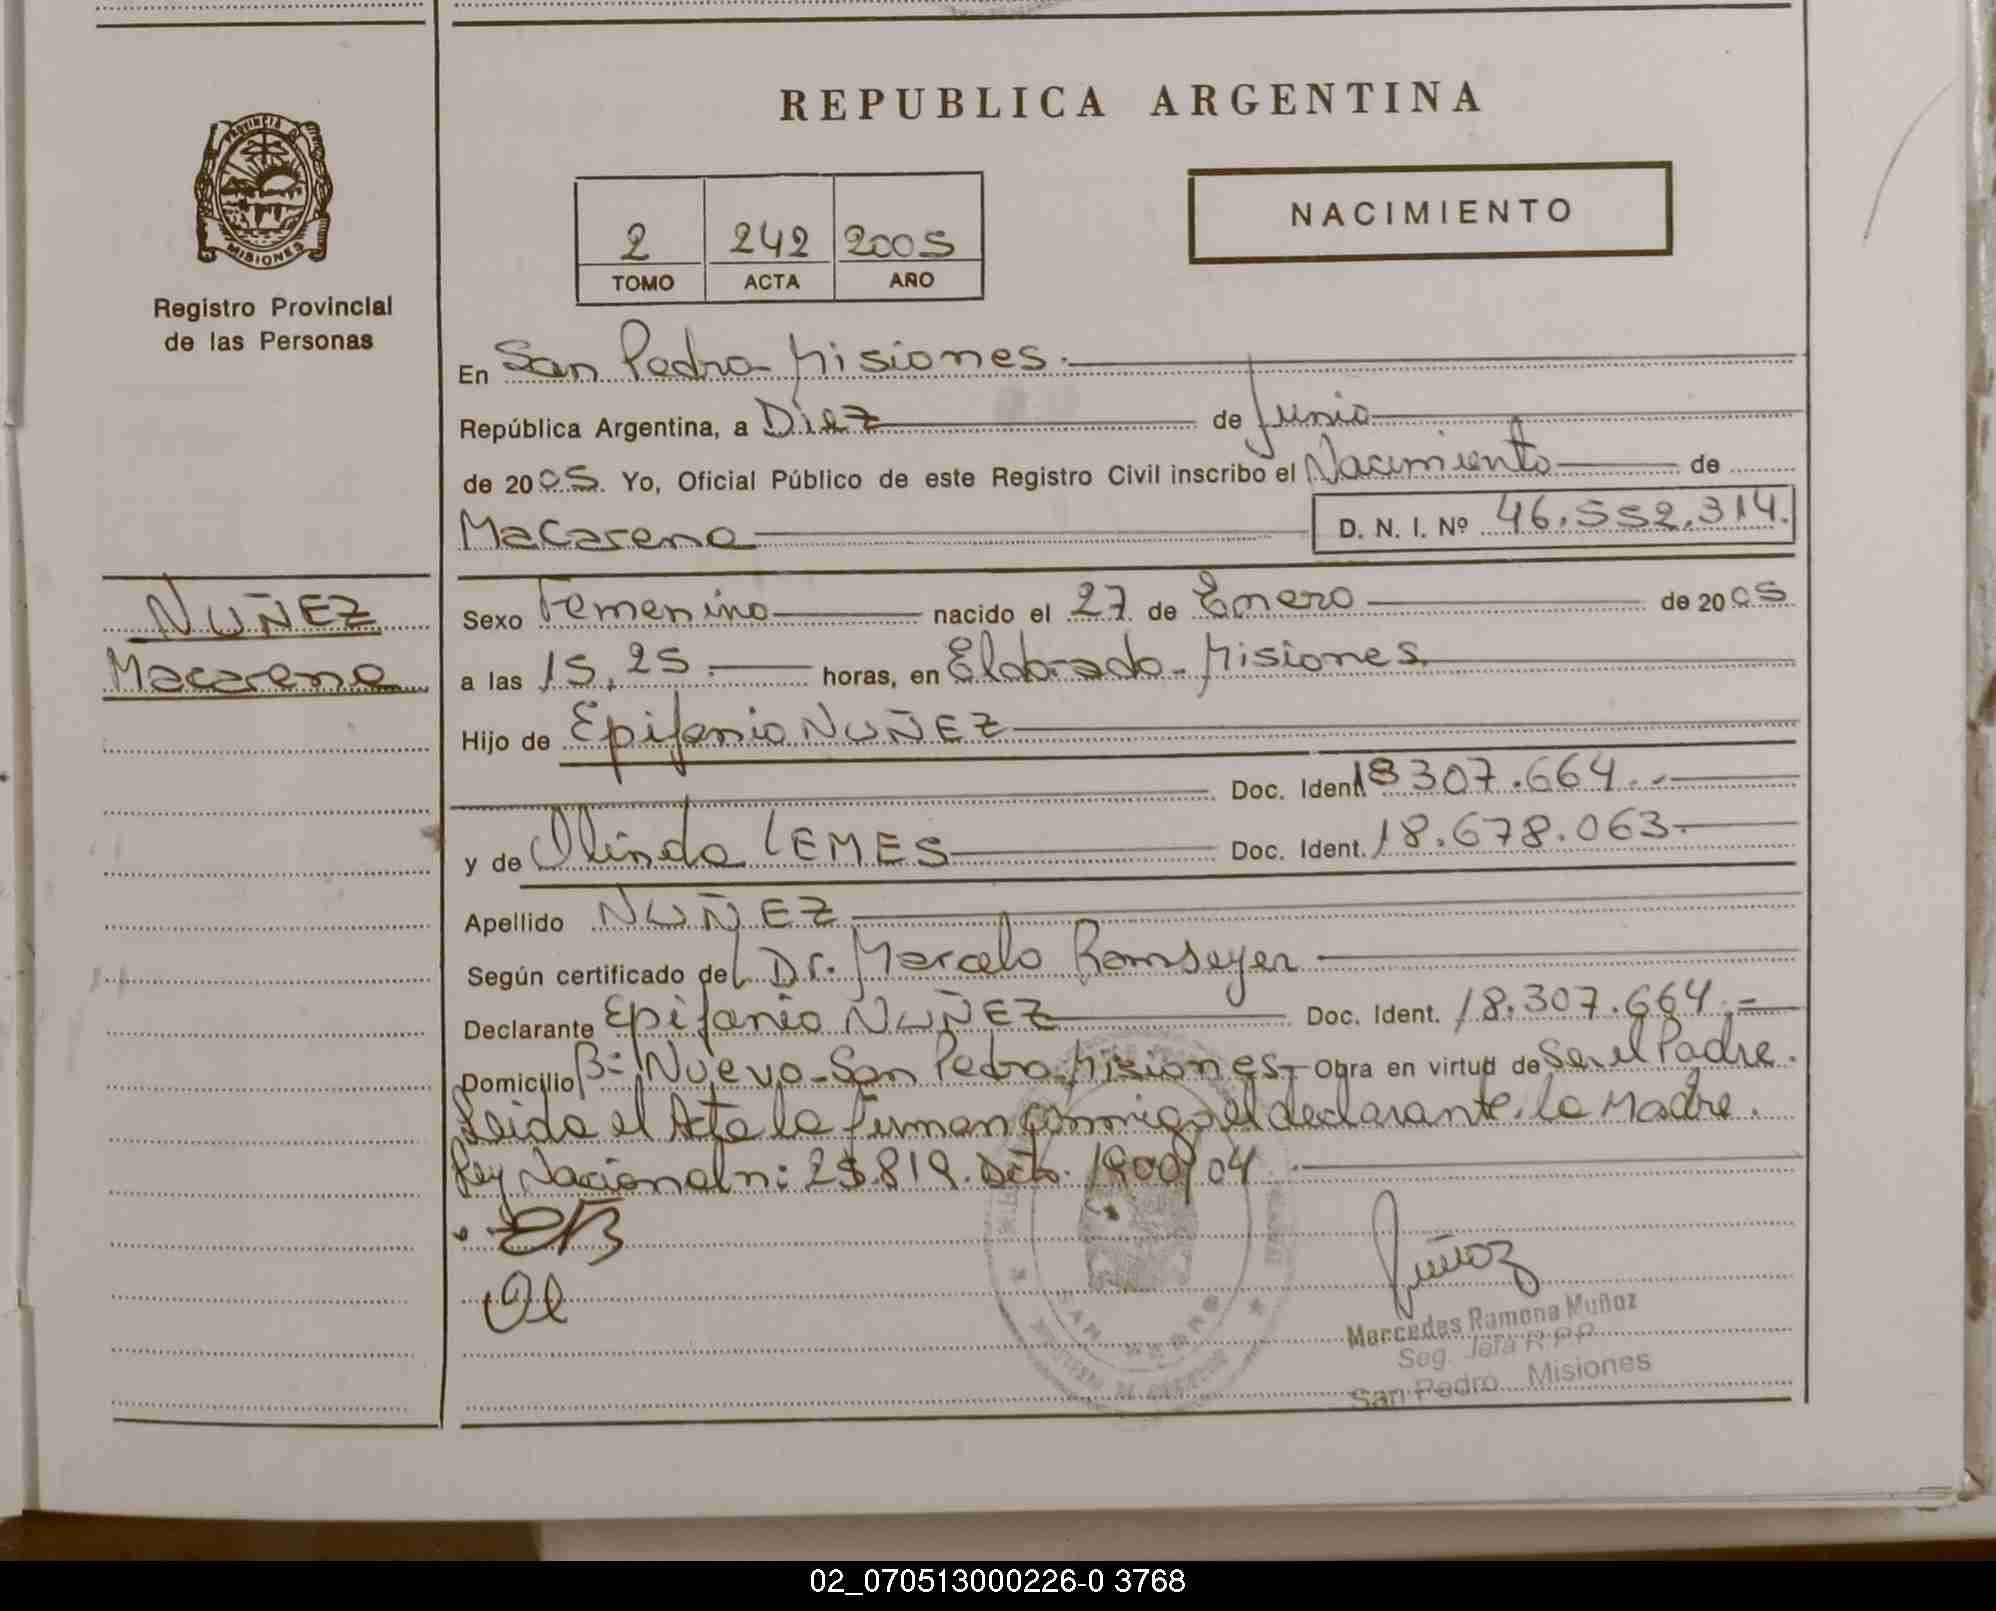 REPUBLICA ARGENTINA
PROVINCIA DE
MISIONES
Registro Provincial
de las Personas
2 242 2005
TOMO ACTA AÑO
NACIMIENTO
En San Pedro - Misiones.
República Argentina, a Diez de Junio
de 2005. Yo, Oficial Público de este Registro Civil inscribo el Nacimiento de
Macarena D. N. I. Nº 46.552.314.
NUÑEZ
Macarena
Sexo Femenino nacido el 27 de Enero de 2005
a las 15,25. horas, en Eldorado - Misiones.
Hijo de Epifanio NUÑEZ
Doc. Ident. 18307.664.-
y de Olinda LEMES Doc. Ident. 18.678.063-
Apellido NUÑEZ
Según certificado del Dr. Marcelo Ramseyer
Declarante Epifanio NUÑEZ Doc. Ident. 18.307.664.=
Domicilio B= Nuevo - San Pedro - Misiones - Obra en virtud de Ser el Padre.
Leida el Acta la firman conmigo el declarante. la Madre.
Ley Nacional n: 25.819. Dcto. 1900/04
Muñoz
Mercedes Ramona Muñoz
Seg. Jefa R.P.P.
San Pedro Misiones
SAN PEDRO
02_070513000226-0 3768